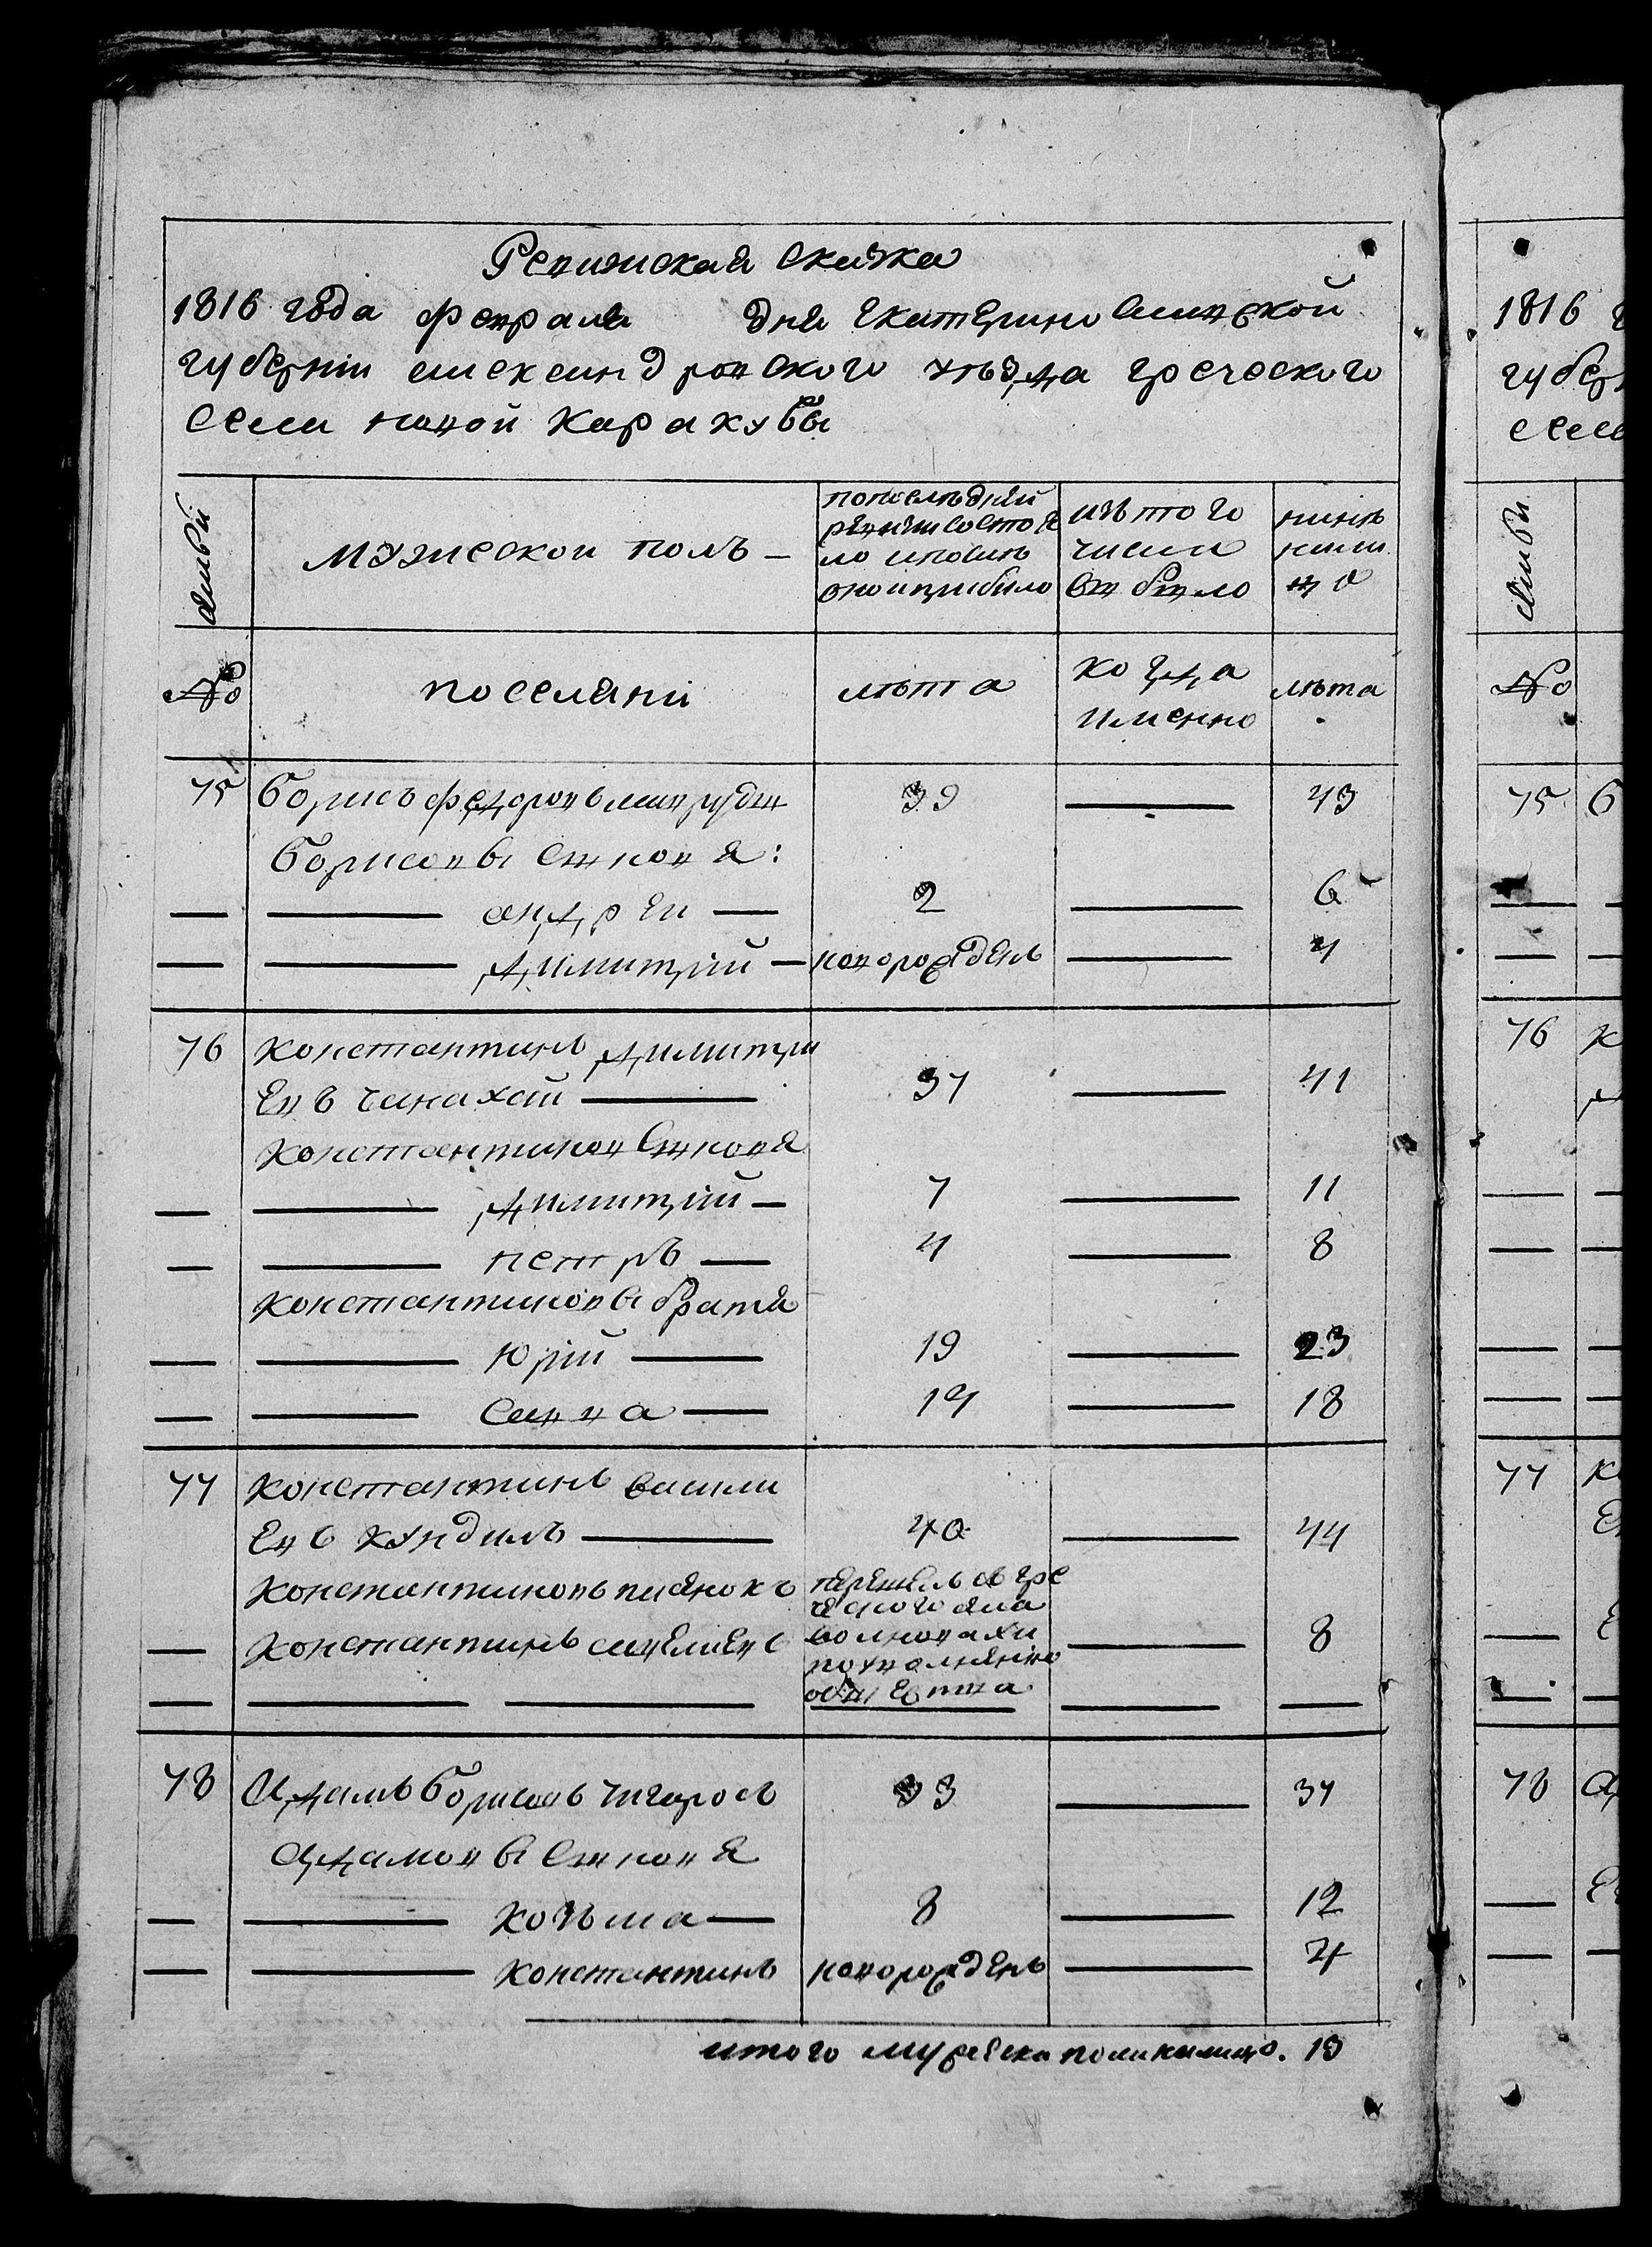 Ревижская скажка
1816 года февраля дня Екатерино славской
губерніи александровского уѣзда греческого
села новой Каракубы
семьи
мужеской полъ —
попослѣдней
ревизіи состоя
ло ипослѣ
оной прибыло
изъ того
числа
выбыло
нинѣ
нали
цо
№
поселяни
лѣта
когда
именно
лѣта
75 Борисъ федоровъ 39 — 43
Борисовы сыновя:
— — андрей — 2 — 6
— — димитрій — новорожденъ — 4
76 Константинъ димитри
евъ чанахай — 37 — 41
Константиновы сыновя
— — димитрій — 7 — 11
— — петръ — 4 — 8
Константиновы братя
— — Юрій — 19 — 23
— — савва — 14 — 18
77 Константинъ васили
евъ кундилъ — 40 — 44
Константиновъ племянокъ
перешелъ съ гре
ческого села
волновахи
поуволнению
общества
— Константинъ савелиевъ — 8
78 Адамъ Борисовъ чигаровъ 33 — 37
Адамовы сыновя
— — козьма — 8 — 12
— — константинъ новорожденъ — 4
итого мужеска пола налицо. 13
1816 г
губер
села
семьи
№
75 Б
76 К
77 К
78 А